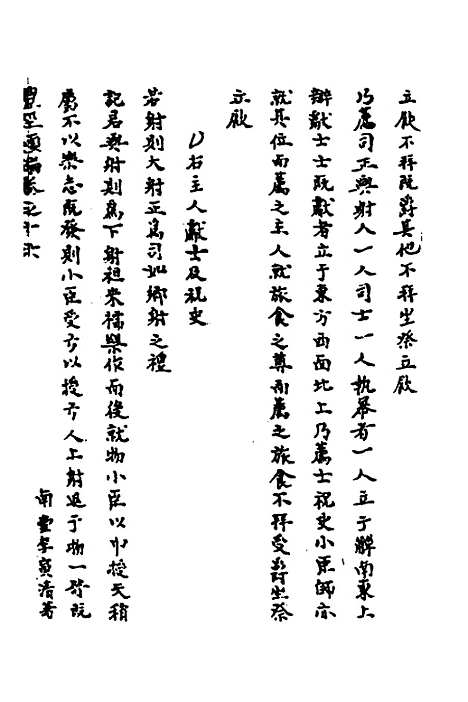 立飲不拜既爵其他不拜坐祭立飲
乃薦司正與射人一人司士一人執冪者一人立于觶南東上
辯獻士士既獻者立于東方西面北上乃薦士祝史小臣師亦
就其位而薦之主人就旅食之尊而薦之旅食不拜受爵坐祭
立飲
右主人獻士及祝史
若射則大射正為司射如鄉射之禮
記君與射則為下射袒朱襦樂作而後就物小臣以巾授矢稍
屬不以樂志既發則小臣受弓以授弓人上射退于物一笴既
南豐李寅清著